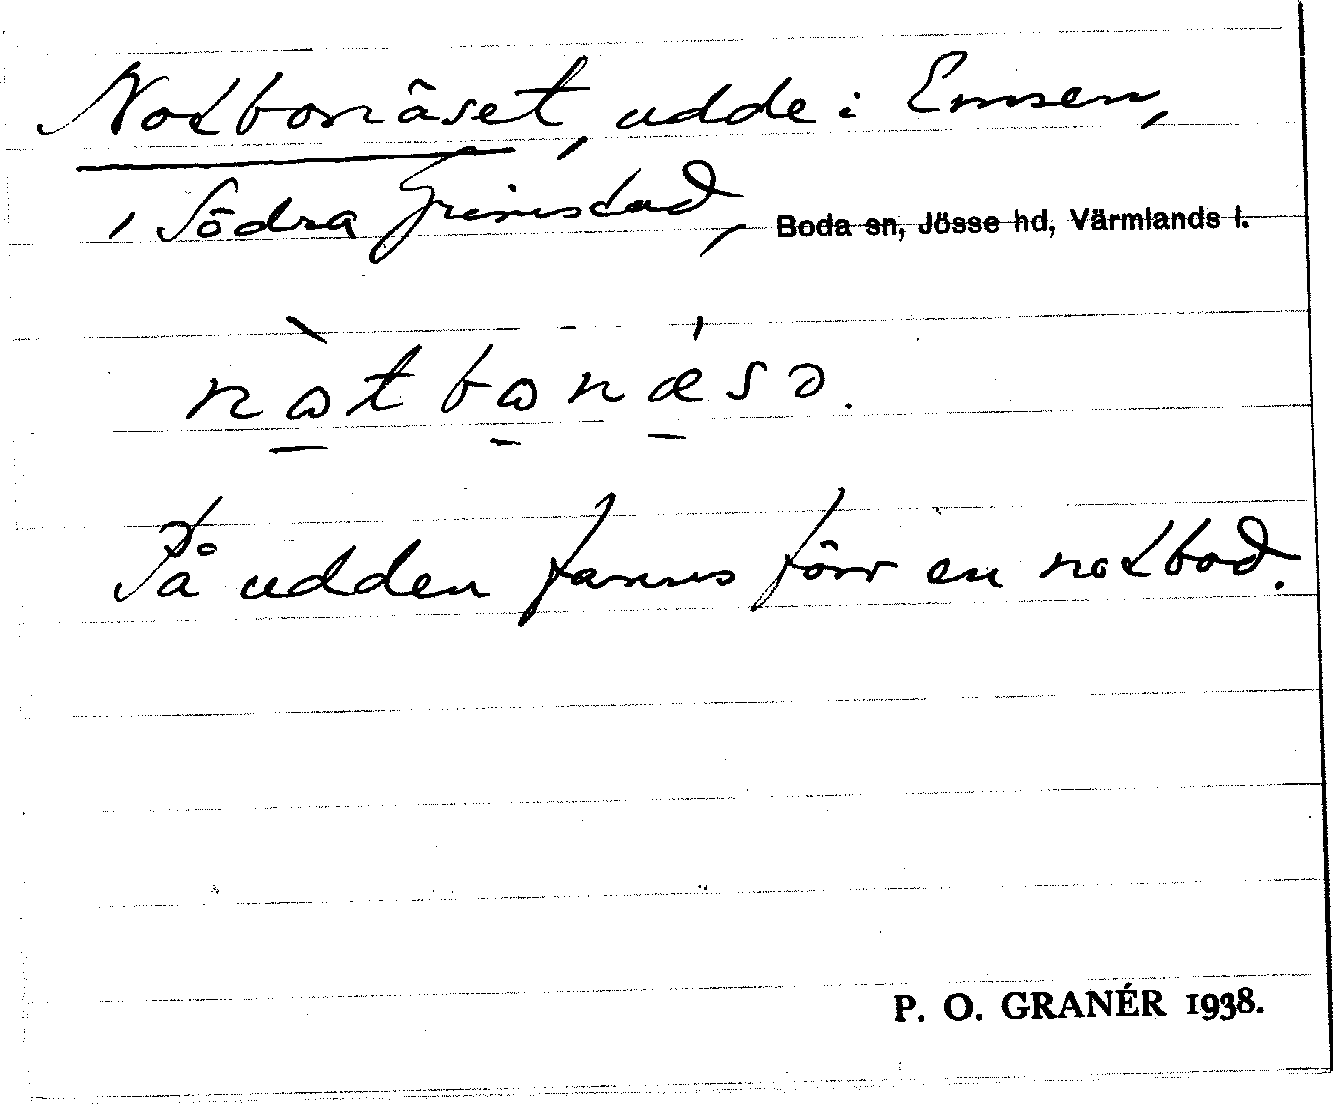 Notbonäset, udde i Emsen,
i Södra Grimstad, Boda sn, Jösse hd, Värmlands l.
nòtbonǽsə.
På udden fanns förr en notbod.
P. O. GRANÉR 1938.